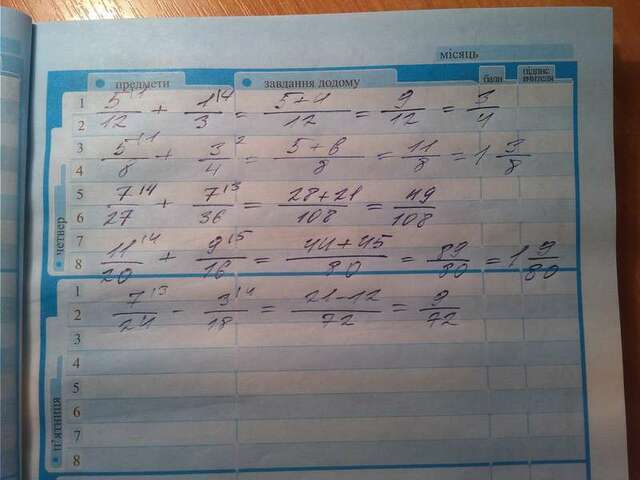 місяць
предмети завдання додому бали підпис вчителя
1 2 5/12 |1 + 1/3 |4 = 5+4/12 = 9/12 = 3/4
3 4 5/8 |1 + 3/4 2 = 5+6/8 = 11/8 = 1 3/8
5 6 7/27 |4 + 7/36 |3 = 28+21/108 = 49/108
7 8 11/20 |4 + 9/16 |5 = 44+45/80 = 89/80 = 1 9/80
четвер
1 2 7/24 |3 - 3/18 |4 = 21-12/72 = 9/72
3
4
5
6
7
8
п'ятниця